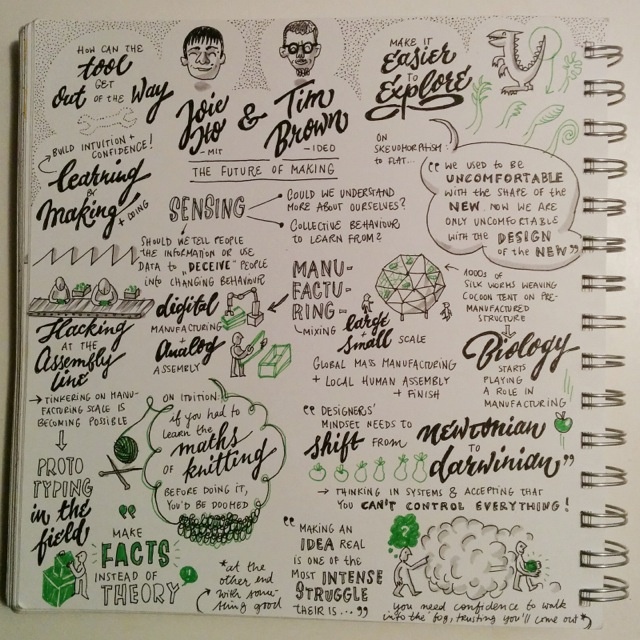 HOW CAN THE
tool
GET
Out OF THE Way
Joie
Ito
- MIT
&
Tim
Brown
- IDEO
THE FUTURE OF MAKING
MAKE IT
Easier
TO
Explore
BUILD INTUITION +
CONFIDENCE!
learning
BY
Making
+ DOING
SENSING
COULD WE UNDERSTAND
MORE ABOUT OURSELVES?
COLLECTIVE BEHAVIOUR
TO LEARN FROM?
SHOULD WE TELL PEOPLE
THE INFORMATION OR USE
DATA TO "DECEIVE" PEOPLE
INTO CHANGING BEHAVIOUR
ON
SKEUOMORPHISM
TO FLAT...
"WE USED TO BE
UNCOMFORTABLE
WITH THE SHAPE OF THE
NEW. NOW WE ARE
ONLY UNCOMFORTABLE
WITH THE DESIGN
OF THE NEW"
Hacking
AT THE
Assembly
line
→ TINKERING ON MANU-
FACTURING SCALE IS
BECOMING POSSIBLE
PROTO
TYPING
in the
field
digital
MANUFACTURING
+
Analog
ASSEMBLY
MANU-
FACTU-
RING -
MIXING large
+ small SCALE
GLOBAL MASS MANUFACTURING
+ LOCAL HUMAN ASSEMBLY
+ FINISH
1000s OF
SILK WORMS WEAVING
COCOON TENT ON PRE-
MANUFACTURED
STRUCTURE
Biology
STARTS
PLAYING
A ROLE IN
MANUFACTURING
ON ITUITION:
If you had to
learn the
maths
OF
knitting
BEFORE DOING IT,
YOU'D BE DOOMED
"DESIGNERS'
MINDSET NEEDS TO
shift FROM newtonian
TO
darwinian"
→ THINKING IN SYSTEMS & ACCEPTING THAT
YOU CAN'T CONTROL EVERYTHING!
"
MAKE
FACTS
INSTEAD OF
THEORY
"
"MAKING AN
IDEA REAL
IS ONE OF THE
MOST INTENSE
STRUGGLE
THEIR IS..."
*at the
other end
with some-
thing good
?
you need confidence to walk
into the fog, trusting you'll come out*